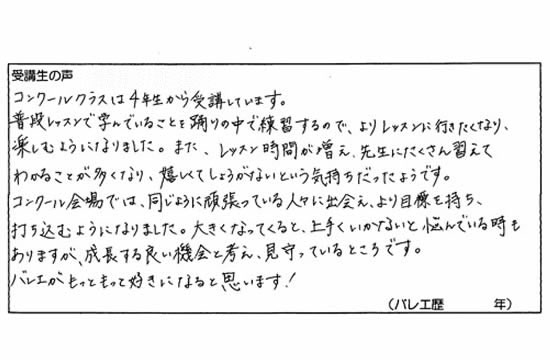 受講生の声
コンクールクラスは4年生から受講しています。
普段レッスンで学んでいることを踊りの中で練習するので、よりレッスンに行きたくなり、
楽しむようになりました。また、レッスン時間が増え、先生にたくさん習えて
わかることが多くなり、嬉しくてしょうがないという気持ちだったようです。
コンクール会場では、同じように頑張っている人々に出会え、より目標を持ち、
打ち込むようになりました。大きくなってくると、上手くいかないと悩んでいる時も
ありますが、成長する良い機会と考え、見守っているところです。
バレエがもっともっと好きになると思います!
(バレエ歴 年)